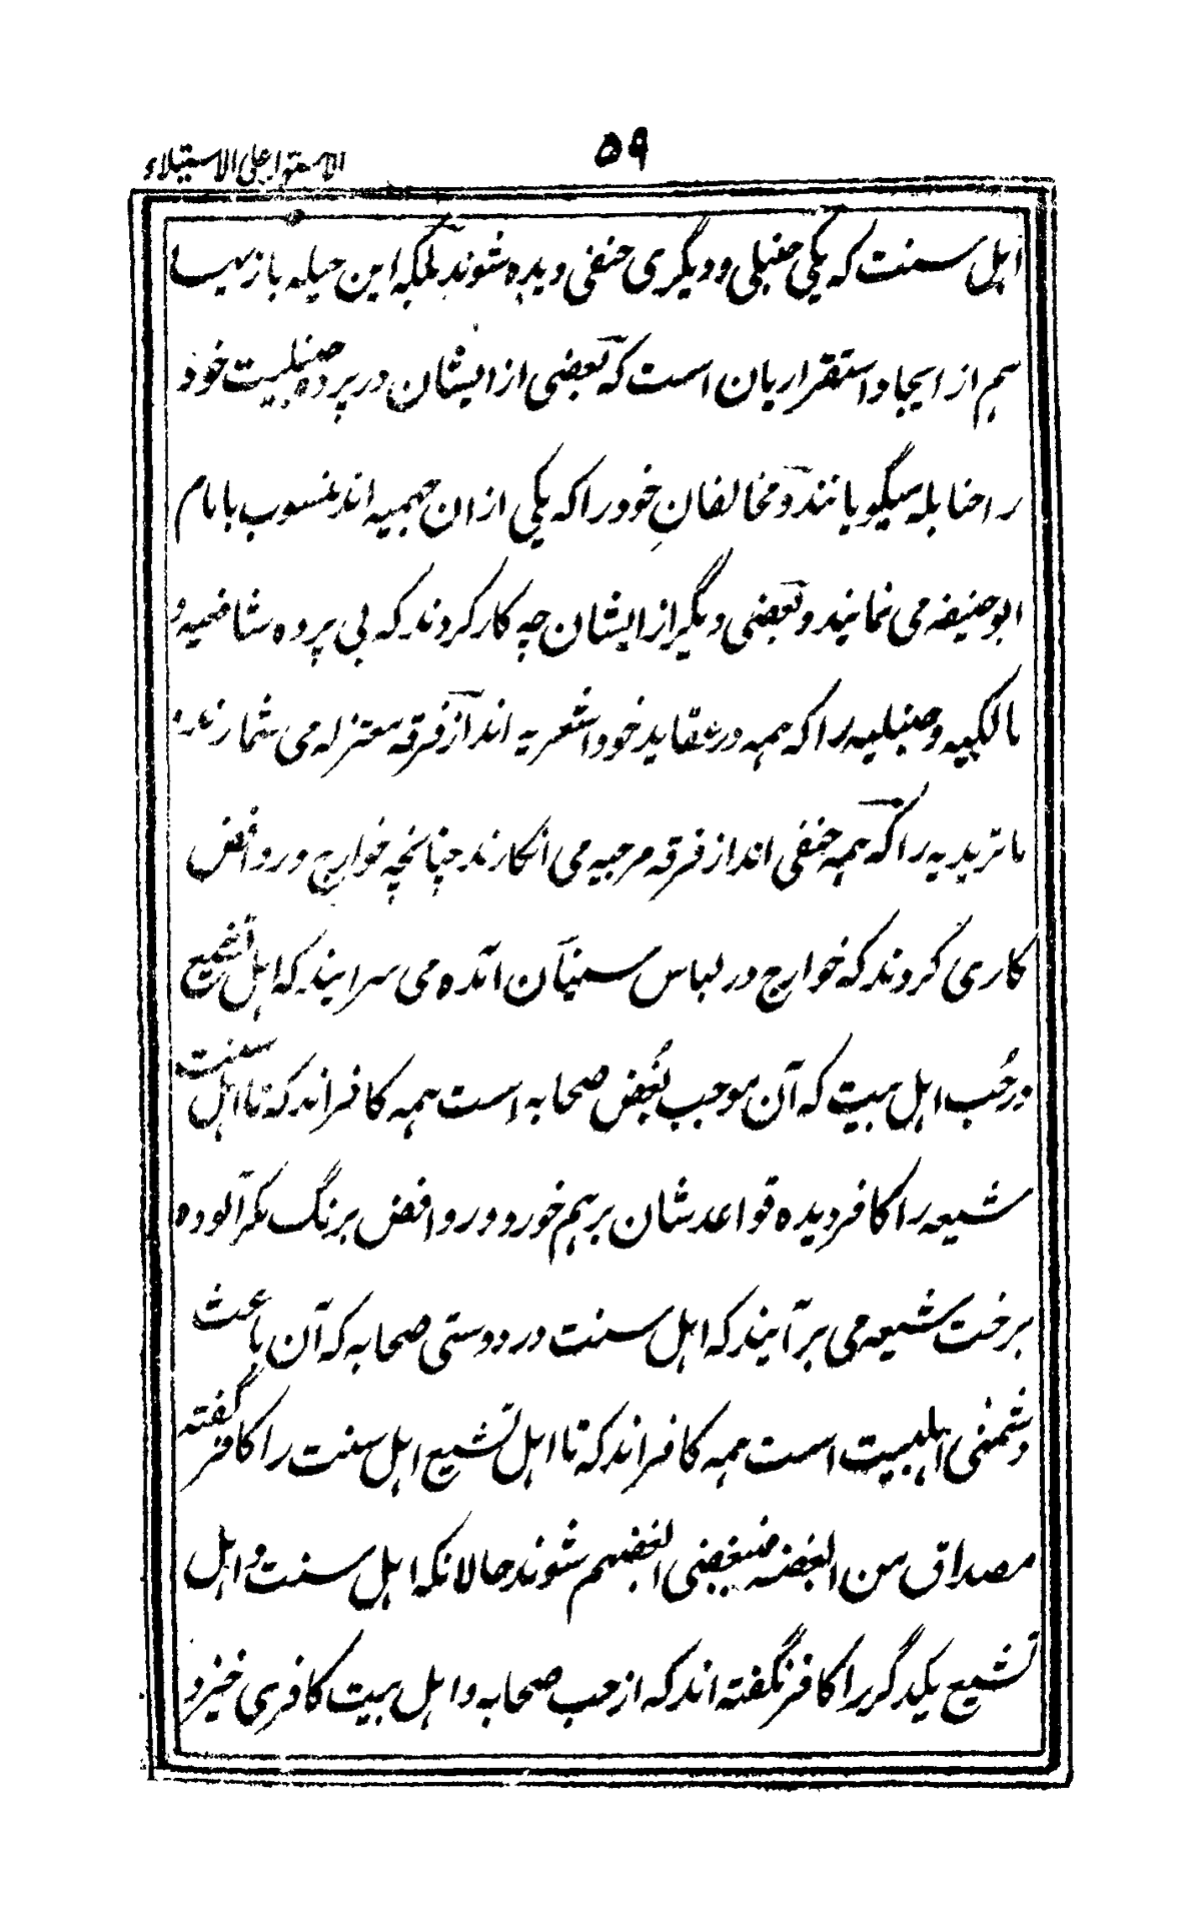 ۵۹
الاستواء علی الاستیلاء
اہل سنت کہ یکی حنبلی و دیگری حنفی دیده شوند بلکہ این حیلہ بازیہا
ہم از ایجاد استقراریان است کہ بعضی از ایشان در پرده حنبلیت خود
را حنابلہ میگویانند و مخالفانِ خود را کہ یکی ازان جہمیہ اند منسوب بامام
ابو حنیفہ می نمایند و بعضی دیگر از ایشان چہ کار کردند کہ بی پرده شافعیہ و
مالکیہ و حنبلیہ را کہ ہمہ در عقاید خود اشعریہ اند از فرقہ معتزلہ می شمارند و
ماتریدیہ را کہ ہمہ حنفی اند از فرقہ مرجیہ می انگارند چنانچہ خوارج و روافض
کاری کردند کہ خوارج در لباس سنیان آمده می سرایند کہ اہل تشیع
در حُب اہل بیت کہ آن موجب بُغض صحابہ است ہمہ کافر اند کہ تا اہل سنت
شیعہ را کافر دیده قواعد شان برہم خورد و روافض برنگ مکر آلوده
برخت شیعہ می برآیند کہ اہل سنت در دوستی صحابہ کہ آن باعث
دشمنی اہلبیت است ہمہ کافر اند کہ تا اہل تشیع اہل سنت را کافر گفتہ
مصداق من ابغضہم فببغضی ابغضہم شوند حالانکہ اہل سنت و اہل
تشیع یکدگر را کافر نگفتہ اند کہ از حب صحابہ و اہل بیت کافری خیزد